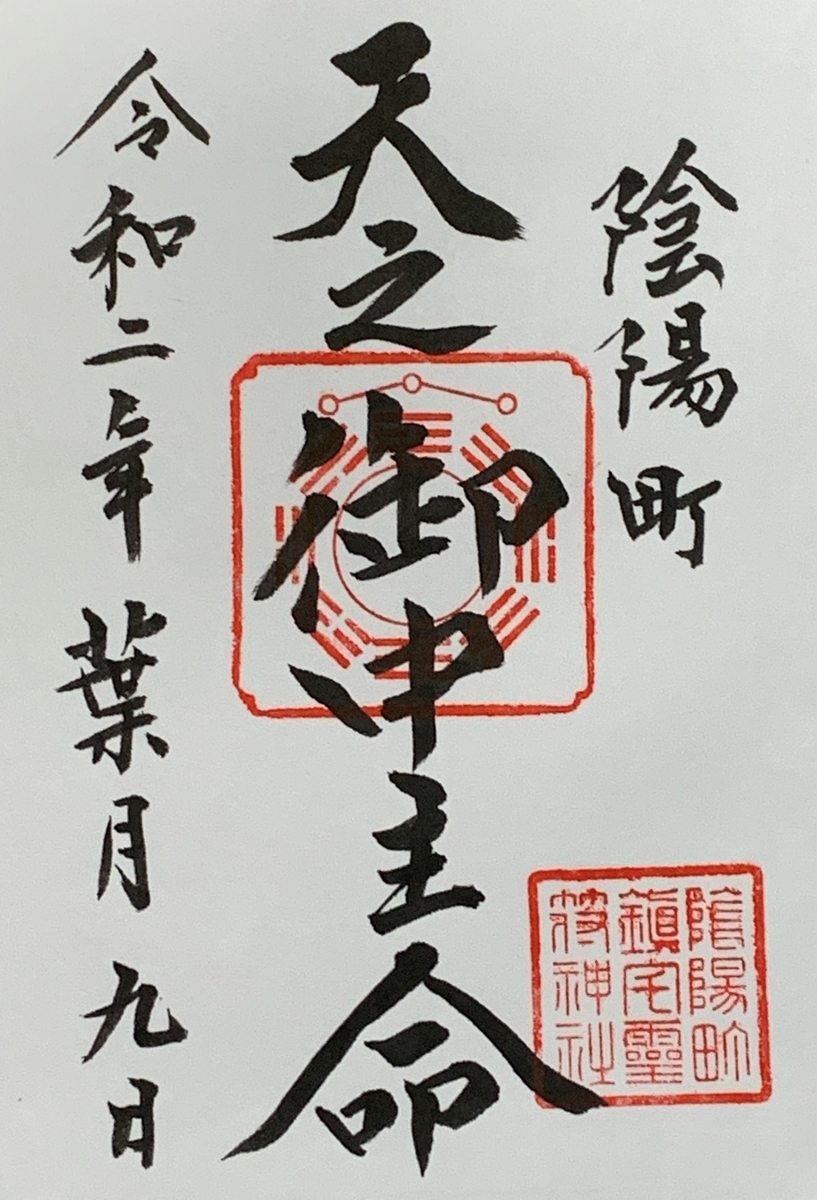 陰陽町
天之御中主命
令和二年葉月九日
陰陽町
鎮宅霊
符神社